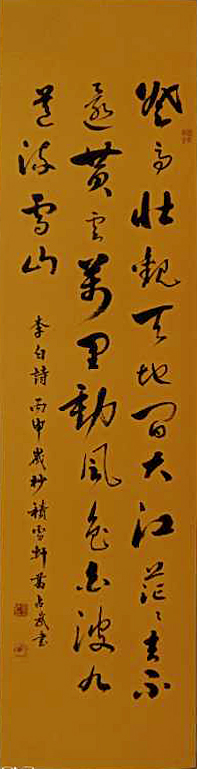 登高壮觀天地間大江茫茫去不
還黄雲萬里動風色白波九
道流雪山
李白詩丙申歲杪積雪軒黃占武書